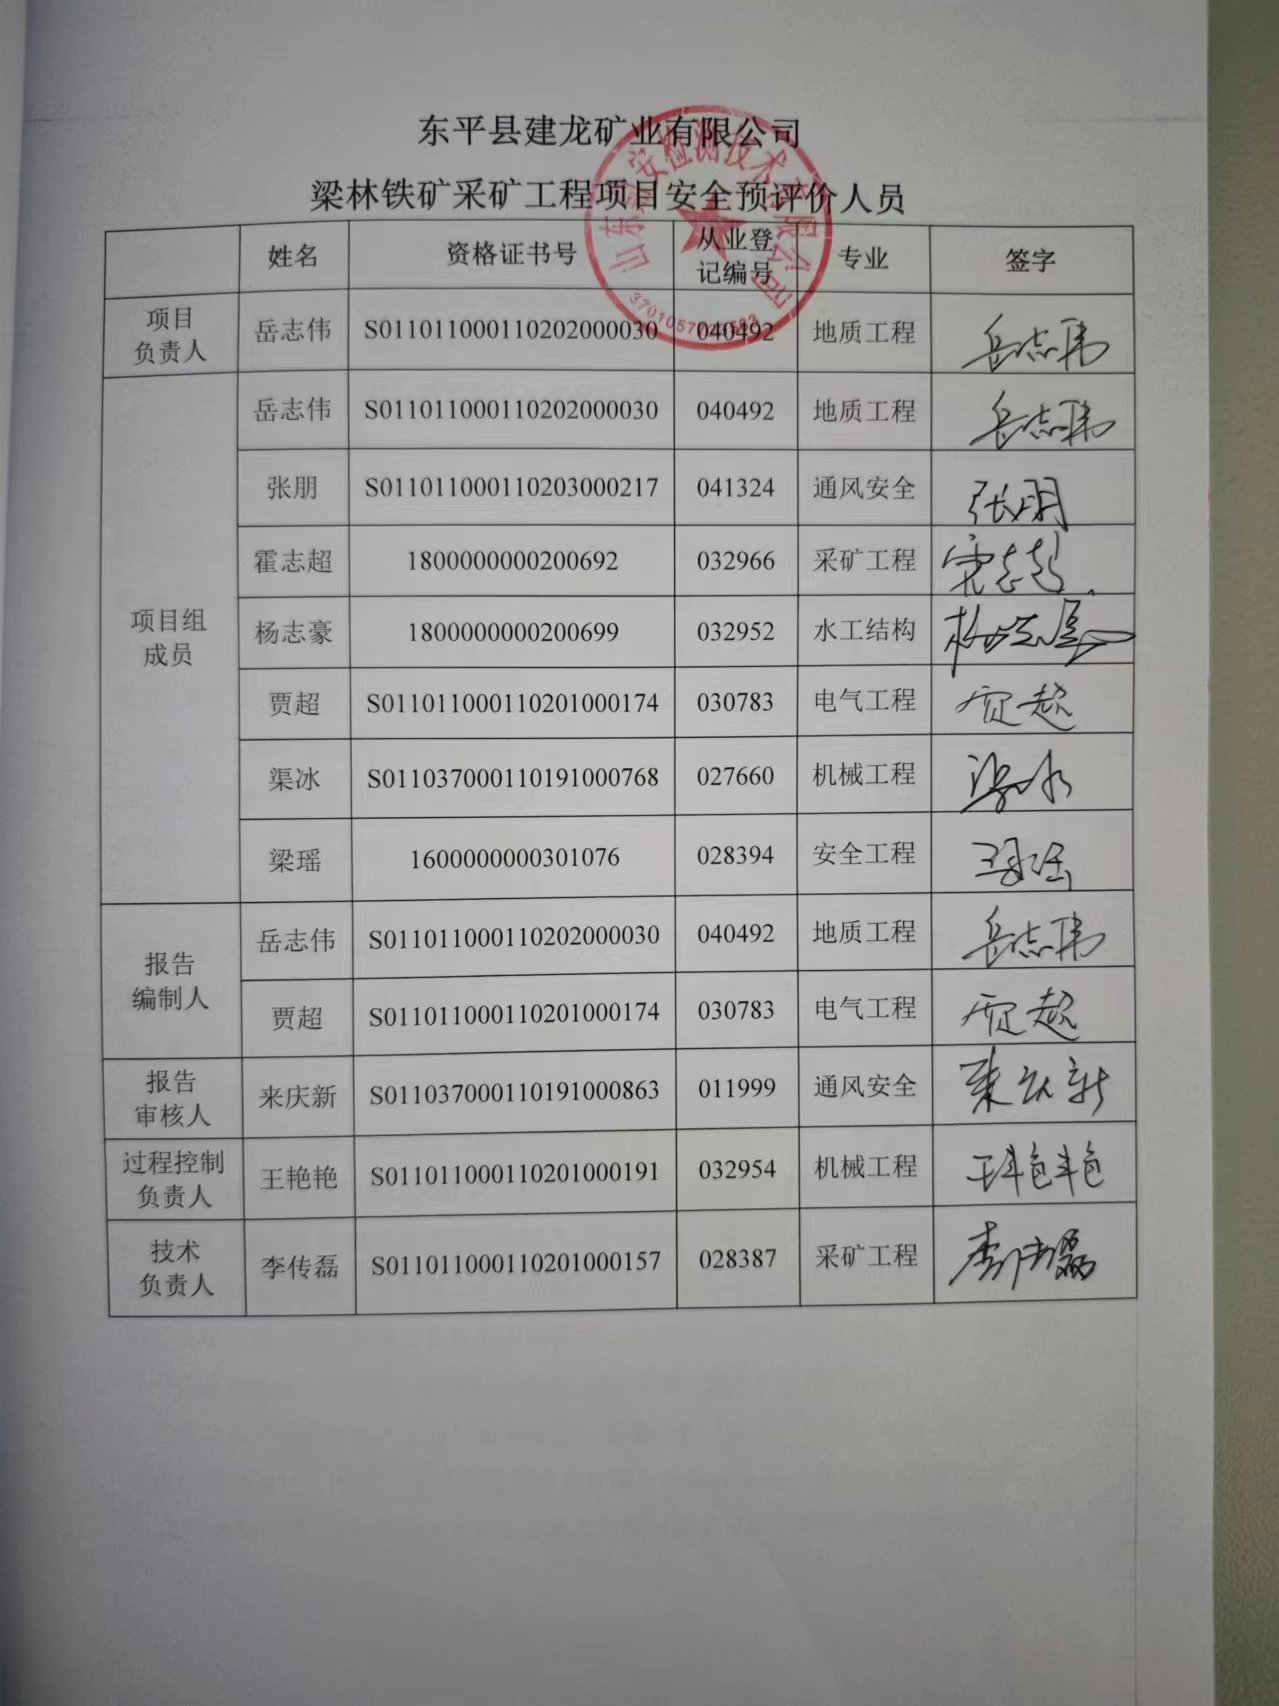 东平县建龙矿业有限公司
梁林铁矿采矿工程项目安全预评价人员
姓名 资格证书号 从业登记编号 专业 签字
项目负责人 岳志伟 S011011000110202000030 040492 地质工程 岳志伟
项目组成员 岳志伟 S011011000110202000030 040492 地质工程 岳志伟
张朋 S011011000110203000217 041324 通风安全 张朋
霍志超 1800000000200692 032966 采矿工程 霍志超
杨志豪 1800000000200699 032952 水工结构 杨志豪
贾超 S011011000110201000174 030783 电气工程 贾超
渠冰 S011037000110191000768 027660 机械工程 渠冰
梁瑶 1600000000301076 028394 安全工程
报告编制人 岳志伟 S011011000110202000030 040492 地质工程 岳志伟
贾超 S011011000110201000174 030783 电气工程 贾超
报告审核人 来庆新 S011037000110191000863 011999 通风安全 来庆新
过程控制负责人 王艳艳 S011011000110201000191 032954 机械工程 王艳艳
技术负责人 李传磊 S011011000110201000157 028387 采矿工程 李传磊
山东 安检测技术有限公司